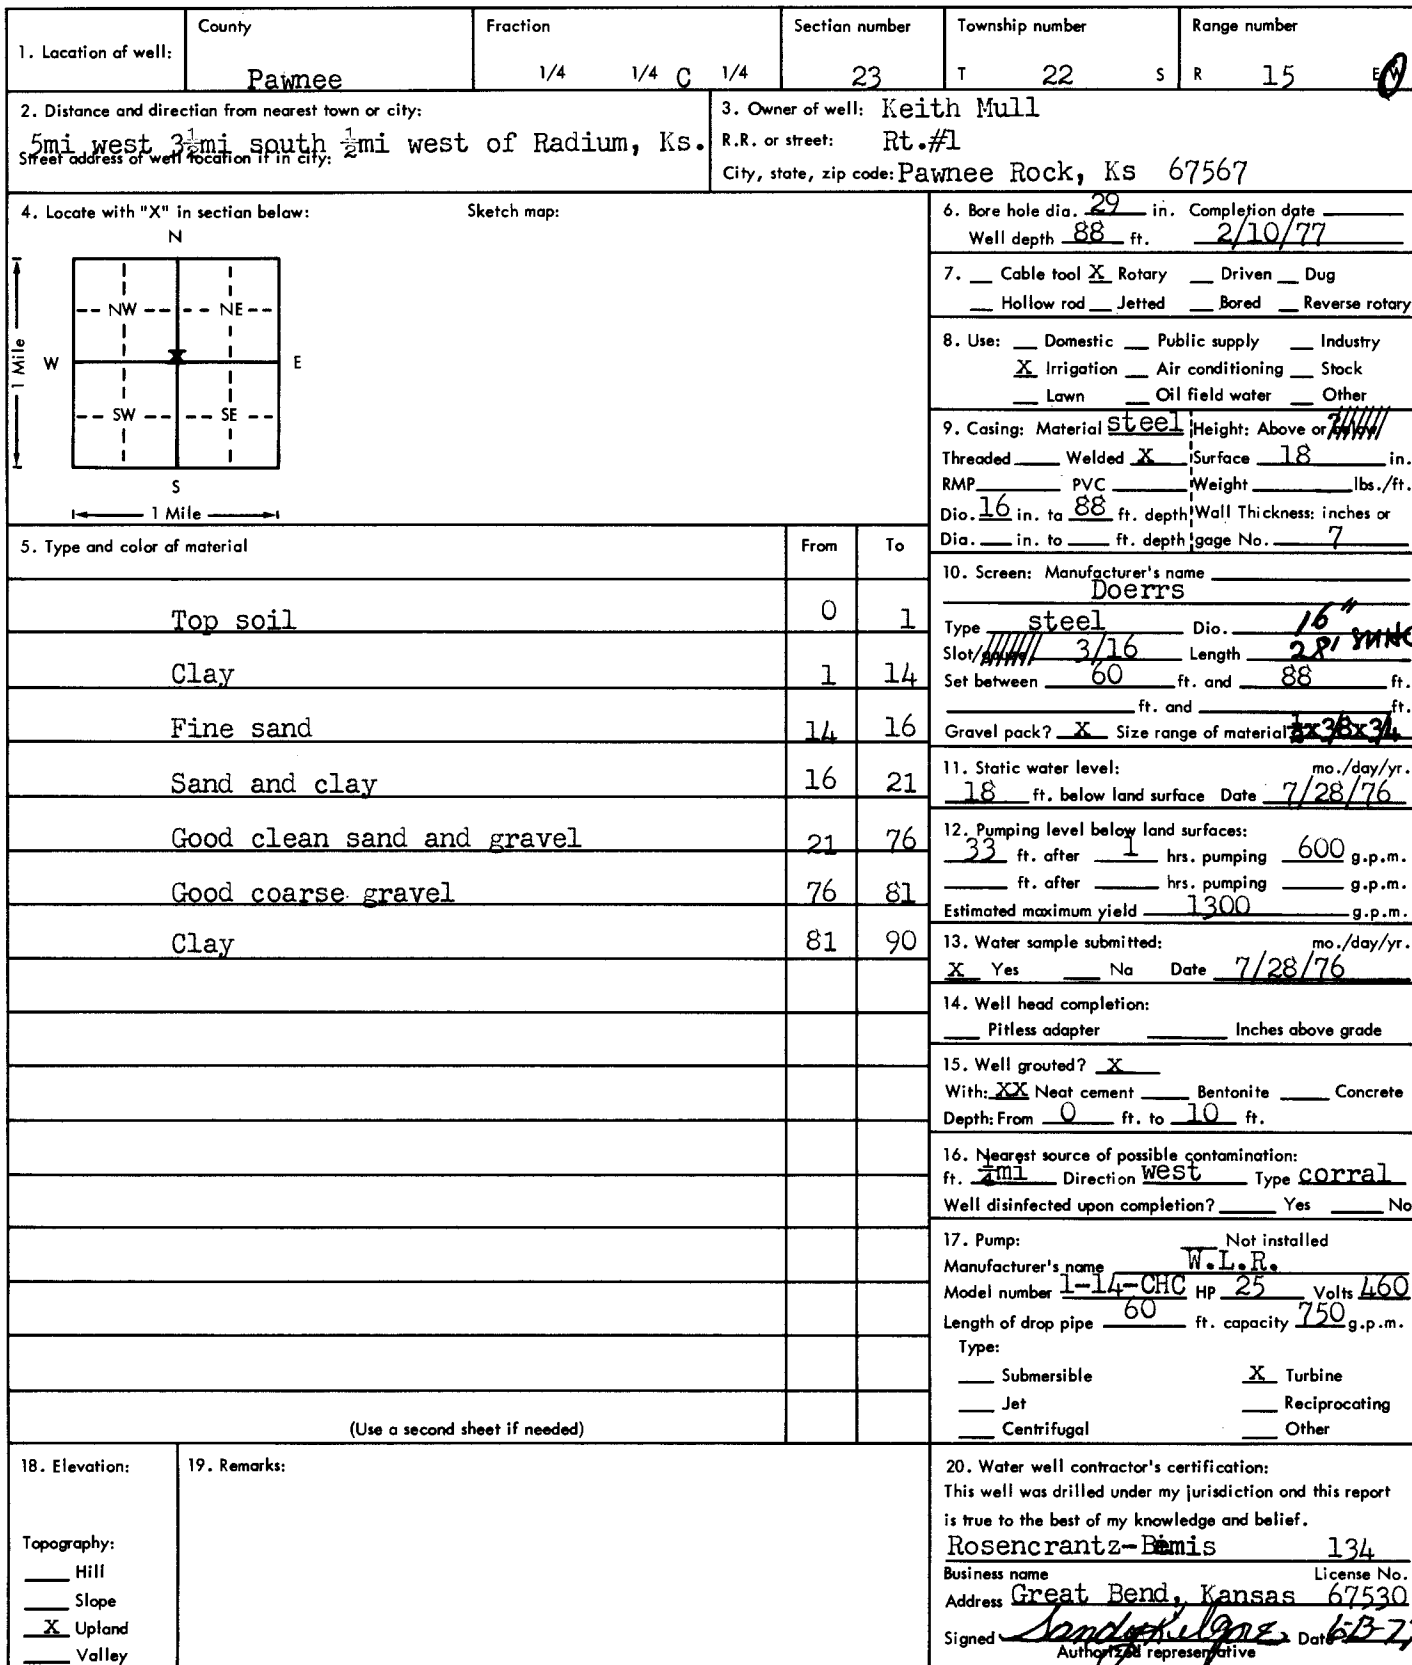 1. Location of well:
County
Pawnee
Fraction
1/4 1/4 C 1/4
Section number
23
Township number
T 22 S
Range number
R 15 E W
2. Distance and direction from nearest town or city:
5mi west 3½mi south ½mi west of Radium, Ks.
Street address of well location if in city:
3. Owner of well: Keith Mull
R.R. or street: Rt.#1
City, state, zip code: Pawnee Rock, Ks 67567
4. Locate with "X" in section below: Sketch map:
N
NW NE
W X E
1 Mile
SW SE
S
1 Mile
5. Type and color of material From To
Top soil 0 1
Clay 1 14
Fine sand 14 16
Sand and clay 16 21
Good clean sand and gravel 21 76
Good coarse gravel 76 81
Clay 81 90
(Use a second sheet if needed)
6. Bore hole dia. 29 in. Completion date
Well depth 88 ft. 2/10/77
7. Cable tool X Rotary Driven Dug
Hollow rod Jetted Bored Reverse rotary
8. Use: Domestic Public supply Industry
X Irrigation Air conditioning Stock
Lawn Oil field water Other
9. Casing: Material steel Height: Above or below
Threaded Welded X Surface 18 in.
RMP PVC Weight lbs./ft.
Dia. 16 in. to 88 ft. depth Wall Thickness: inches or
Dia. in. to ft. depth gage No. 7
10. Screen: Manufacturer's name
Doerrs
Type steel Dia. 16"
Slot/gauze 3/16 Length 28'
Set between 60 ft. and 88 ft.
ft. and ft.
Gravel pack? X Size range of material ½x3/8x3/4
11. Static water level: mo./day/yr.
18 ft. below land surface Date 7/28/76
12. Pumping level below land surfaces:
33 ft. after 1 hrs. pumping 600 g.p.m.
ft. after hrs. pumping g.p.m.
Estimated maximum yield 1300 g.p.m.
13. Water sample submitted: mo./day/yr.
X Yes No Date 7/28/76
14. Well head completion:
Pitless adapter Inches above grade
15. Well grouted? X
With: XX Neat cement Bentonite Concrete
Depth: From 0 ft. to 10 ft.
16. Nearest source of possible contamination:
ft. ¼mi Direction west Type corral
Well disinfected upon completion? Yes No
17. Pump: Not installed
Manufacturer's name W.L.R.
Model number 1-14-CHC HP 25 Volts 460
Length of drop pipe 60 ft. capacity 750 g.p.m.
Type:
Submersible X Turbine
Jet Reciprocating
Centrifugal Other
18. Elevation:
Topography:
Hill
Slope
X Upland
Valley
19. Remarks:
20. Water well contractor's certification:
This well was drilled under my jurisdiction and this report
is true to the best of my knowledge and belief.
Rosencrantz-Bemis 134
Business name License No.
Address Great Bend, Kansas 67530
Signed Sandy Kilgore Date
Authorized representative